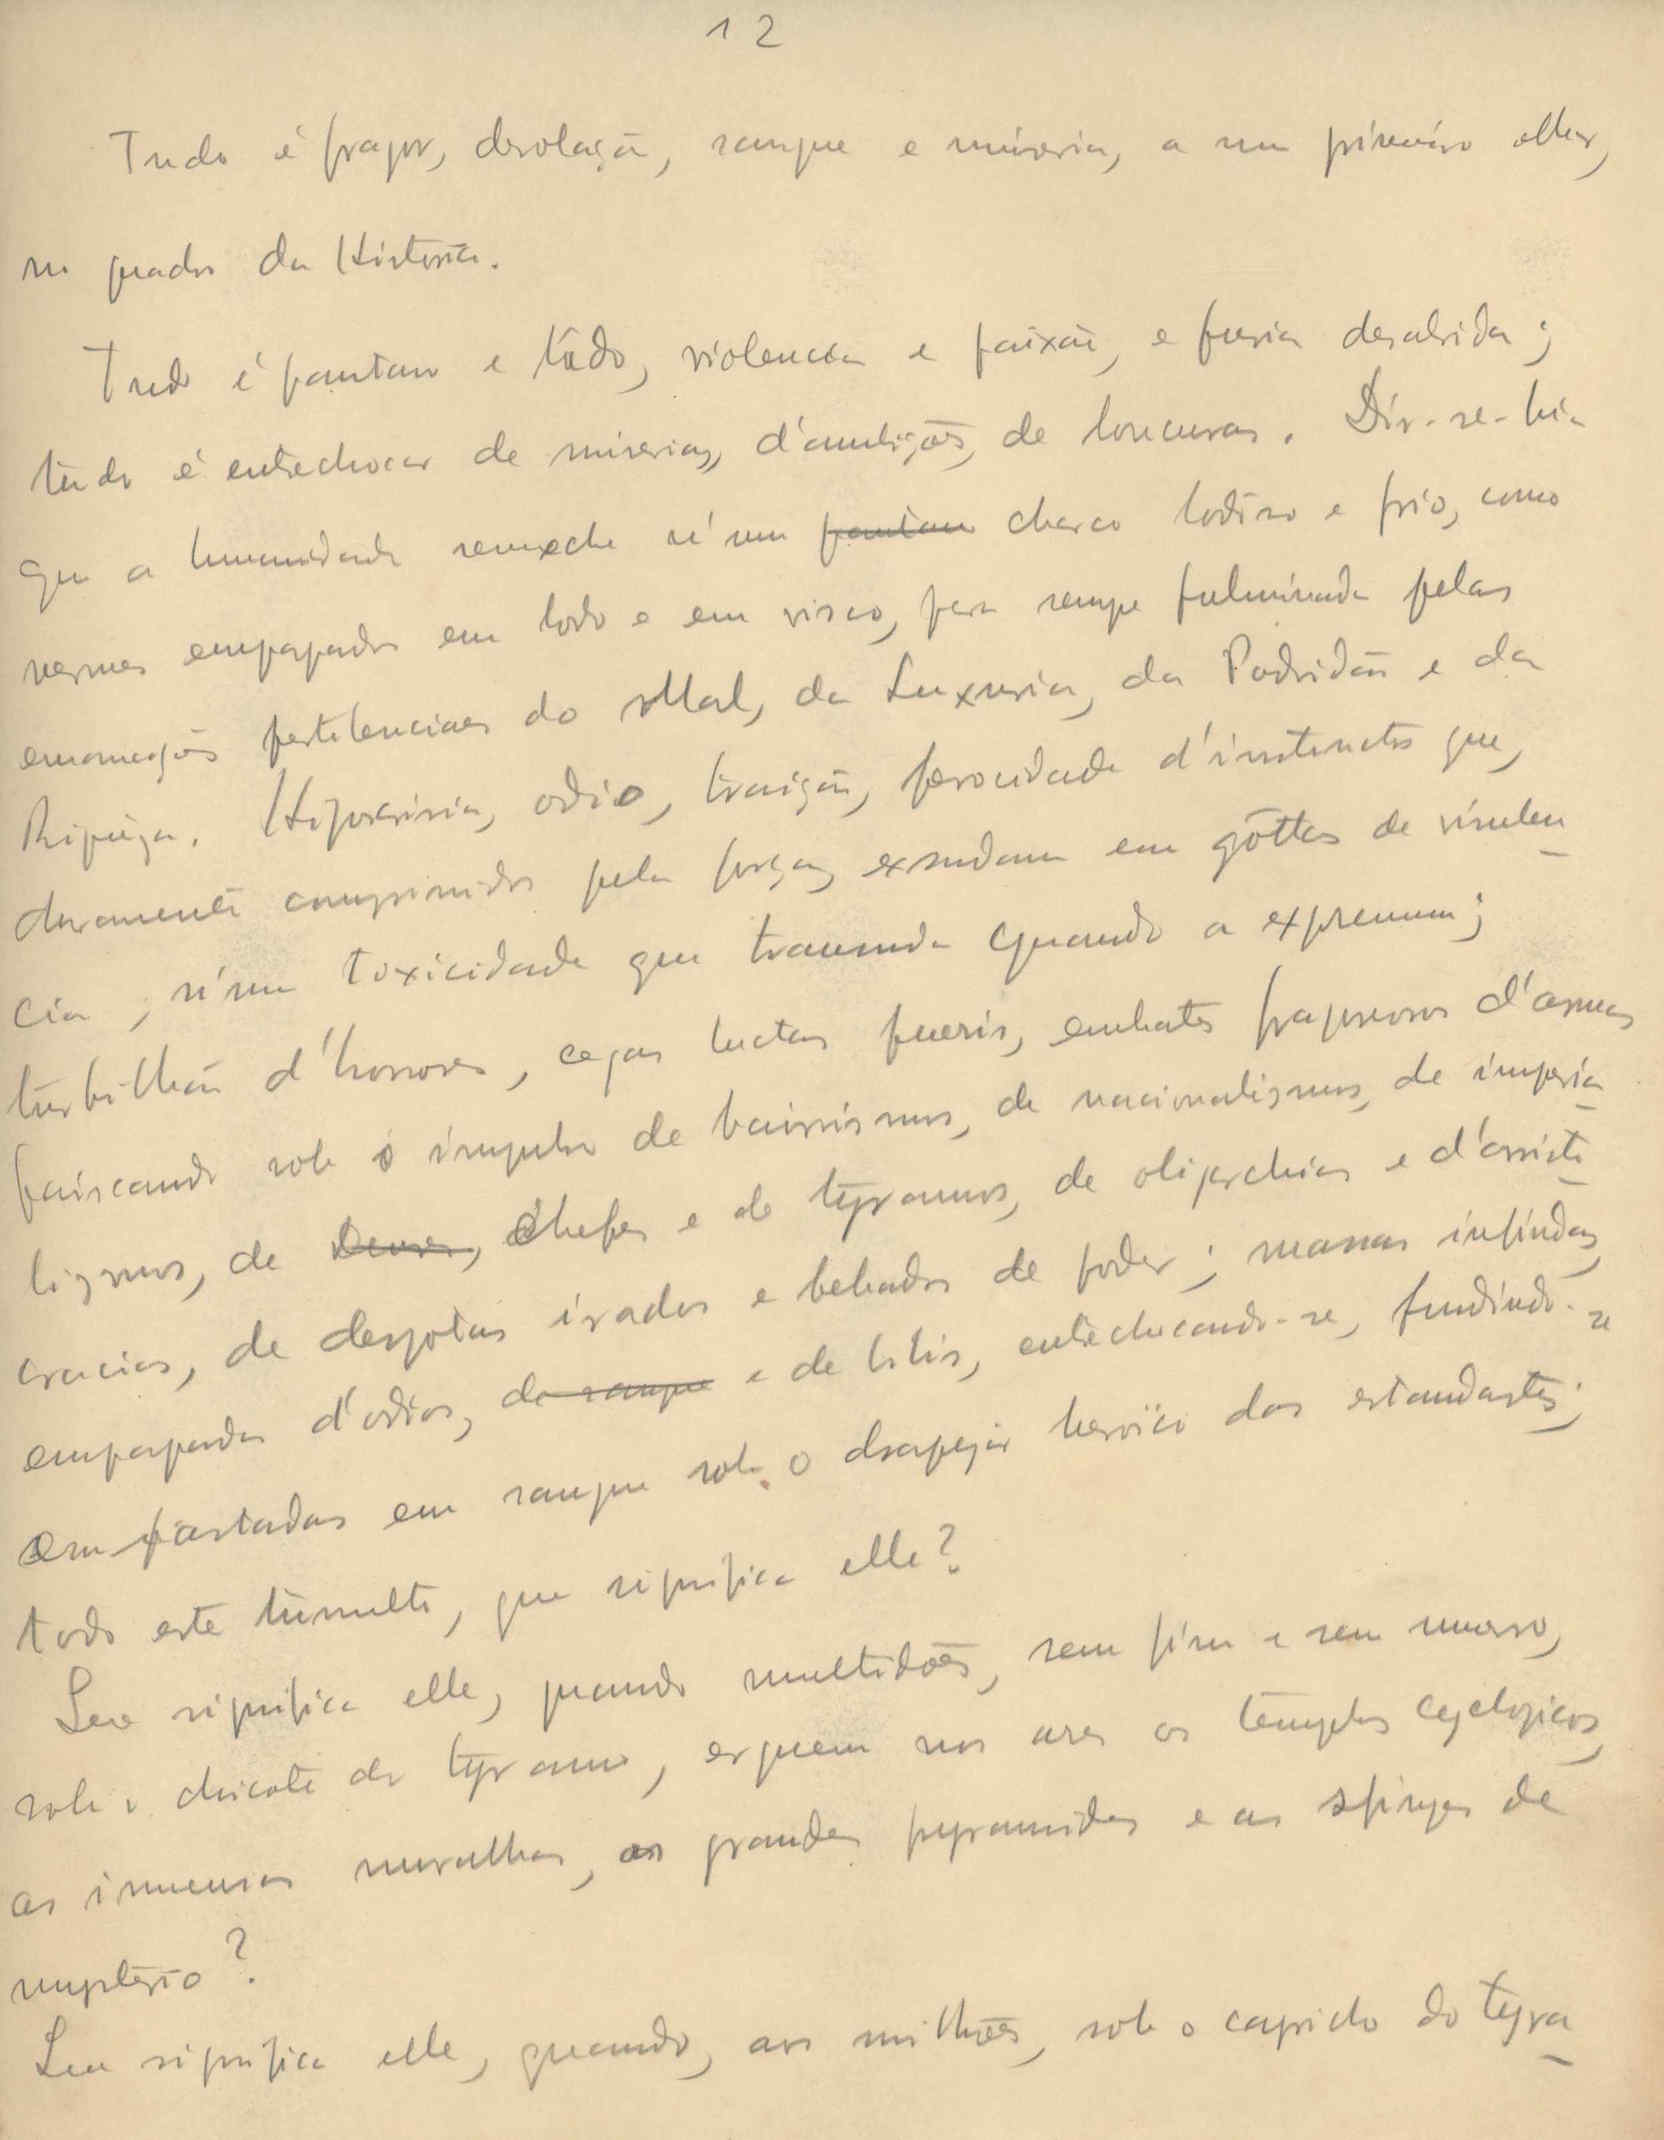 12
Tudo é fragor, desolação, sangue e miseria, a um primeiro olhar,
no quadro da Historia.
Tudo é pantano e lôdo, violencia e paixão, e furia desabrida;
tudo é entrechocar de miserias, d'ambições, de loucuras. Dir-se-hia
que a humanidade remexche n'um pantano charco lodoso e frio, como
vermes empapados em lodo e em visco, para sempre fulminada pelas
emanações pestilenciaes do Mal, da Luxuria, da Podridão e da
Hipocrisia, odio, traição, ferocidade d'instinctos que,
duramente comprimidos pela força, exsudam em gôttas de virulen-
cia, n'uma toxicidade que transuda quando a expremem;
turbilhão d'horrores, cegas luctas fueris, embates fragorosos d'armas
faiscando sob o impulso de bairrismos, de nacionalismos, de imperia-
lismos, de Deuses, Chefes e de tyrannos, de oligarchias e d'aristo-
cracias, de despotas irados e bebados de poder; massas infindas,
empapadas d'odios, de sangue e de bilis, entrechocando-se, fundindo-se
empastadas em sangue sob o drapejar heroïco dos estandartes;
todo este tumulto, que significa elle?
Que significa elle, quando multidões, sem fim e sem numero,
sob o chicote do tyranno, erguem nos ares os templos cyclopicos,
as immensas muralhas, as grandes pyramides e as sfinges de
mysterio?
Que significa elle, quando, aos milhões, sob o capricho do tyra-